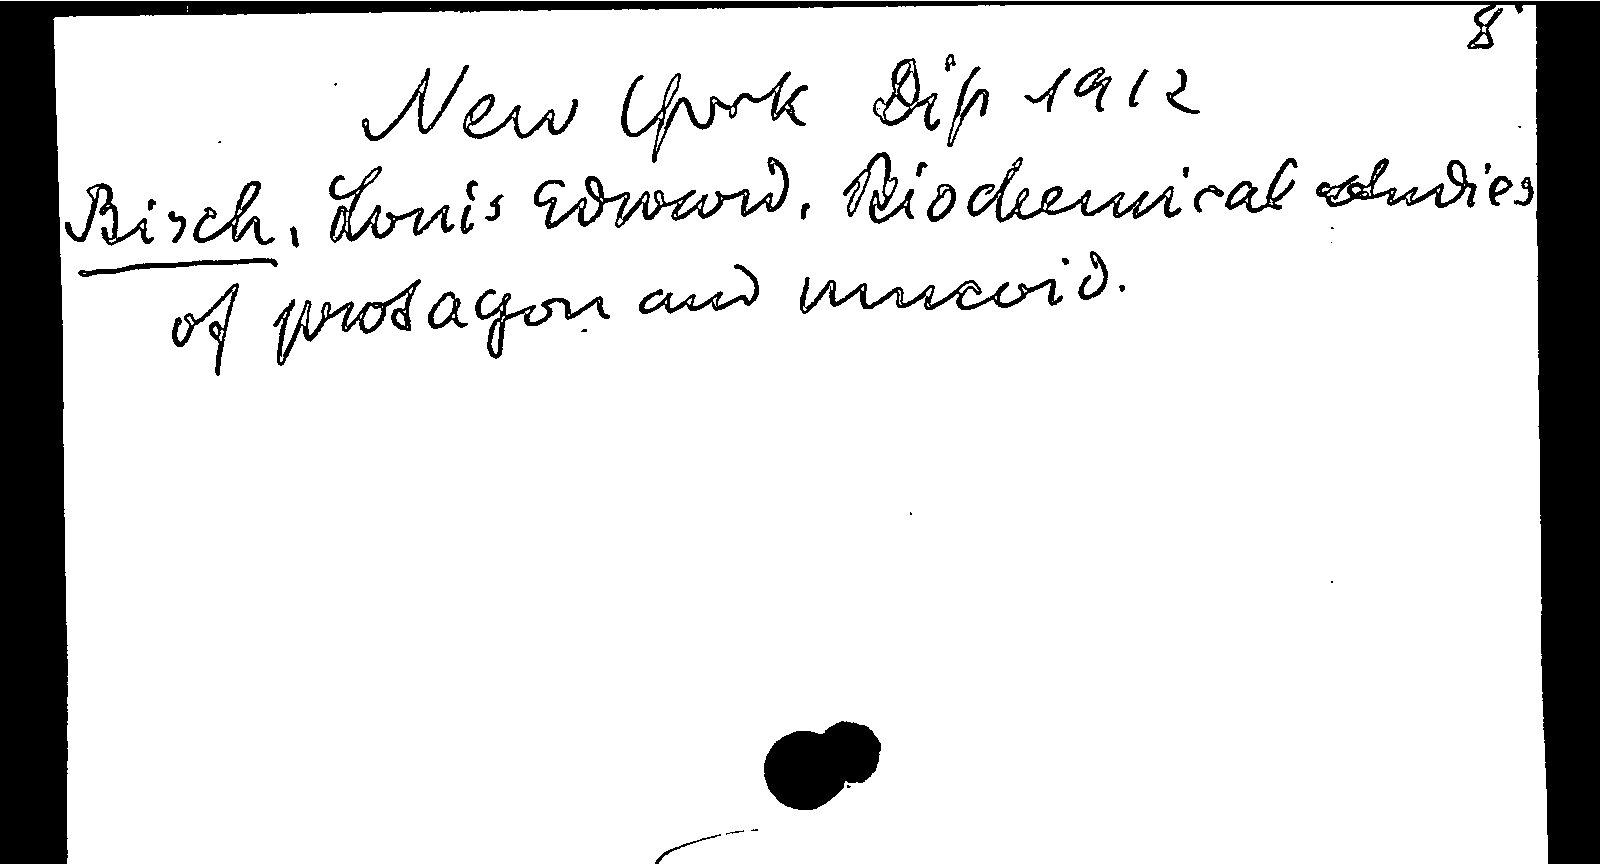 8°
New York Diss 1912
Bisch, Louis Edward. Biochemical studies
of protagon and mucoid.